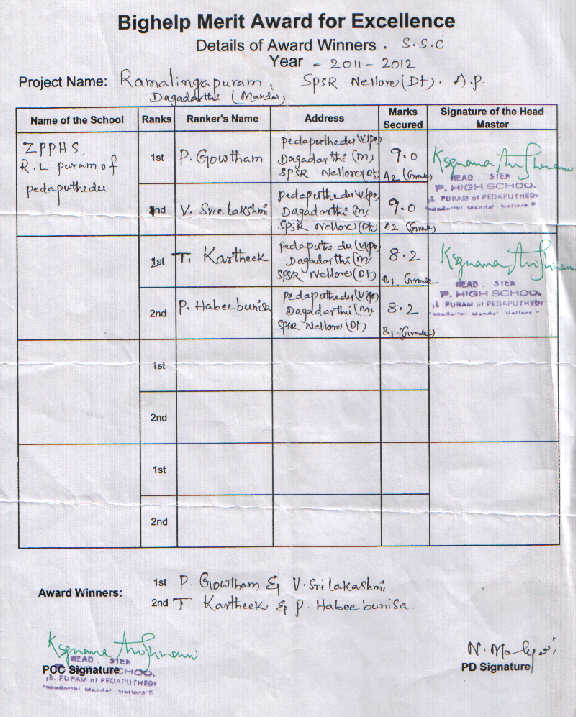 Bighelp Merit Award for Excellence
Details of Award Winners . S.S.C
Year - 2011 - 2012
Project Name: Ramalingapuram, SPSR Nellore (Dt). A.P.
Dagadarthi (Mandal)
Name of the School Ranks Ranker's Name Address Marks Secured Signature of the Head Master
ZPPHS
R.L puram of
pedaputhedu
1st P. Gowtham pedaputhedu V/po
Dagadarthi (M)
SPSR Nellore (Dt) 9.0
A2 (Grade)
HEAD
P. HIGH SCHOOL
PURAM of PEDAPUTHEDU
2nd V. Srilakshmi pedaputhedu V/po
Dagadarthi (M)
SPSR Nellore (Dt) 9.0
A2 (Grade)
1st T. Kartheek pedaputhedu (V/po)
Dagadarthi (M)
SPSR Nellore (Dt) 8.2
B1 Grade
HEAD
P. HIGH SCHOOL
PURAM of PEDAPUTHEDU
2nd P. Habeebunisa Pedaputhedu (V/po)
Dagadarthi (M)
SPSR Nellore (Dt) 8.2
B1 (Grade)
1st
2nd
1st
2nd
Award Winners: 1st P Gowtham & V. Srilakashmi
2nd T Kartheek & P. Habeebunisa
PCC Signature
HEAD
PURAM of PEDAPUTHEDU
PD Signature